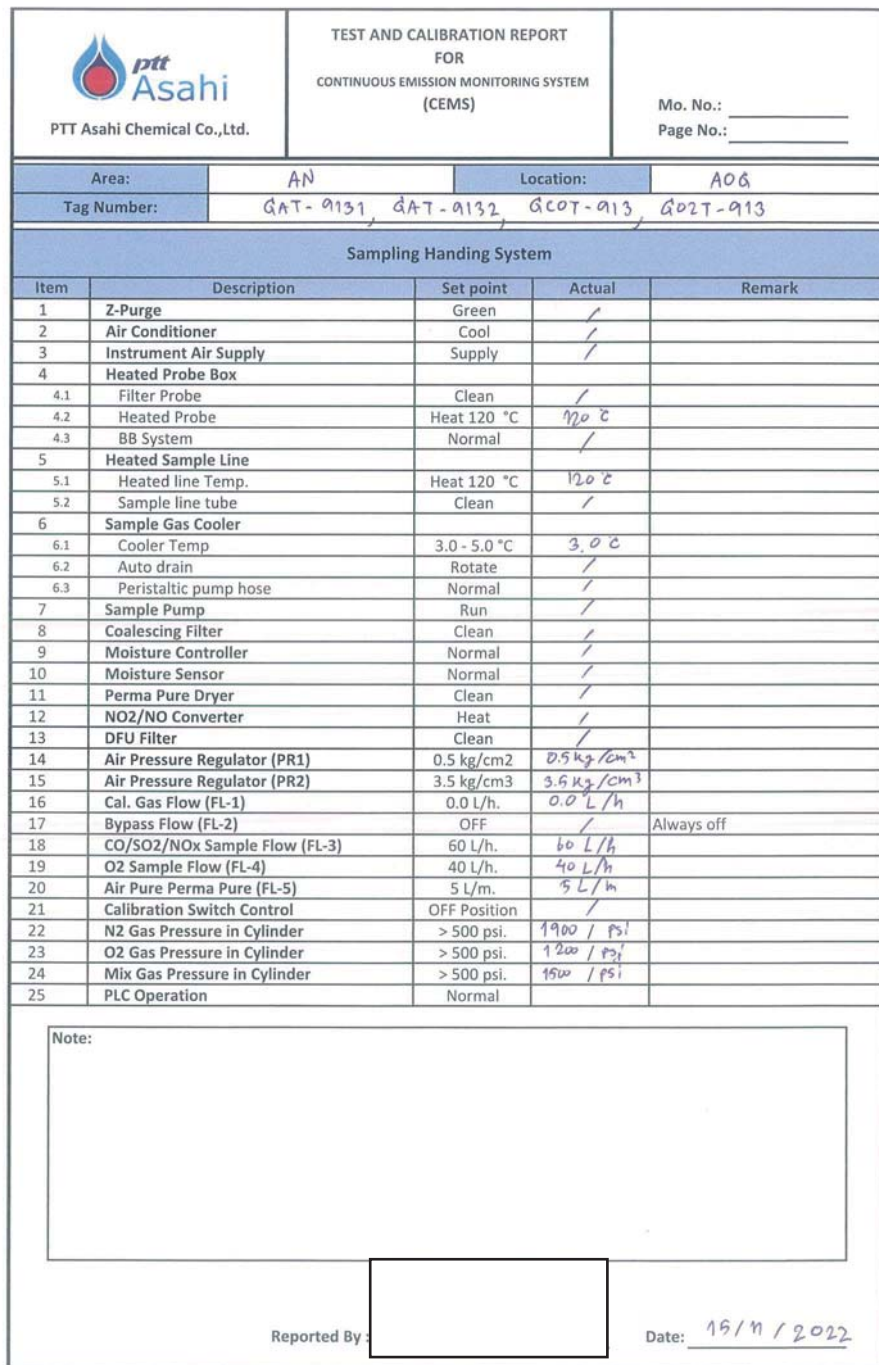 ptt
Asahi
PTT Asahi Chemical Co.,Ltd.
TEST AND CALIBRATION REPORT
FOR
CONTINUOUS EMISSION MONITORING SYSTEM
(CEMS)
Mo. No.:
Page No.:
Area: AN Location: AOG
Tag Number: GAT-9131, GAT-9132, GCOT-913, GO2T-913
Sampling Handing System
Item Description Set point Actual Remark
1 Z-Purge Green /
2 Air Conditioner Cool /
3 Instrument Air Supply Supply /
4 Heated Probe Box
4.1 Filter Probe Clean /
4.2 Heated Probe Heat 120 °C 120 °C
4.3 BB System Normal /
5 Heated Sample Line
5.1 Heated line Temp. Heat 120 °C 120 °C
5.2 Sample line tube Clean /
6 Sample Gas Cooler
6.1 Cooler Temp 3.0 - 5.0 °C 3.0 C
6.2 Auto drain Rotate /
6.3 Peristaltic pump hose Normal /
7 Sample Pump Run /
8 Coalescing Filter Clean /
9 Moisture Controller Normal /
10 Moisture Sensor Normal /
11 Perma Pure Dryer Clean /
12 NO2/NO Converter Heat /
13 DFU Filter Clean /
14 Air Pressure Regulator (PR1) 0.5 kg/cm2 0.5 kg/cm²
15 Air Pressure Regulator (PR2) 3.5 kg/cm3 3.5 kg/cm³
16 Cal. Gas Flow (FL-1) 0.0 L/h. 0.0 L/h
17 Bypass Flow (FL-2) OFF / Always off
18 CO/SO2/NOx Sample Flow (FL-3) 60 L/h. 60 L/h
19 O2 Sample Flow (FL-4) 40 L/h. 40 L/h
20 Air Pure Perma Pure (FL-5) 5 L/m. 5 L/m
21 Calibration Switch Control OFF Position /
22 N2 Gas Pressure in Cylinder > 500 psi. 1900 / psi
23 O2 Gas Pressure in Cylinder > 500 psi. 1200 / psi
24 Mix Gas Pressure in Cylinder > 500 psi. 1500 / psi
25 PLC Operation Normal
Note:
Reported By :
Date: 15/11/2022